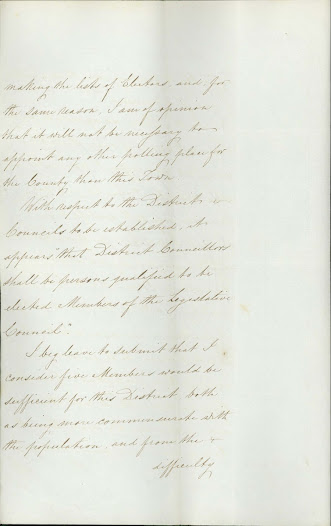 making the lists of Electors, and for
the same reason, I am of opinion
that it will not be necessary to
appoint any other polling place for
the County than this Town
With respect to the District
Councils to be established, it
appears "that District Councillors
shall be persons qualified to be
elected Members of the Legislative
Council".
I beg leave to submit that I
consider five Members would be
sufficient for this District both
as being more commensurate with
the population, and from the
difficulty